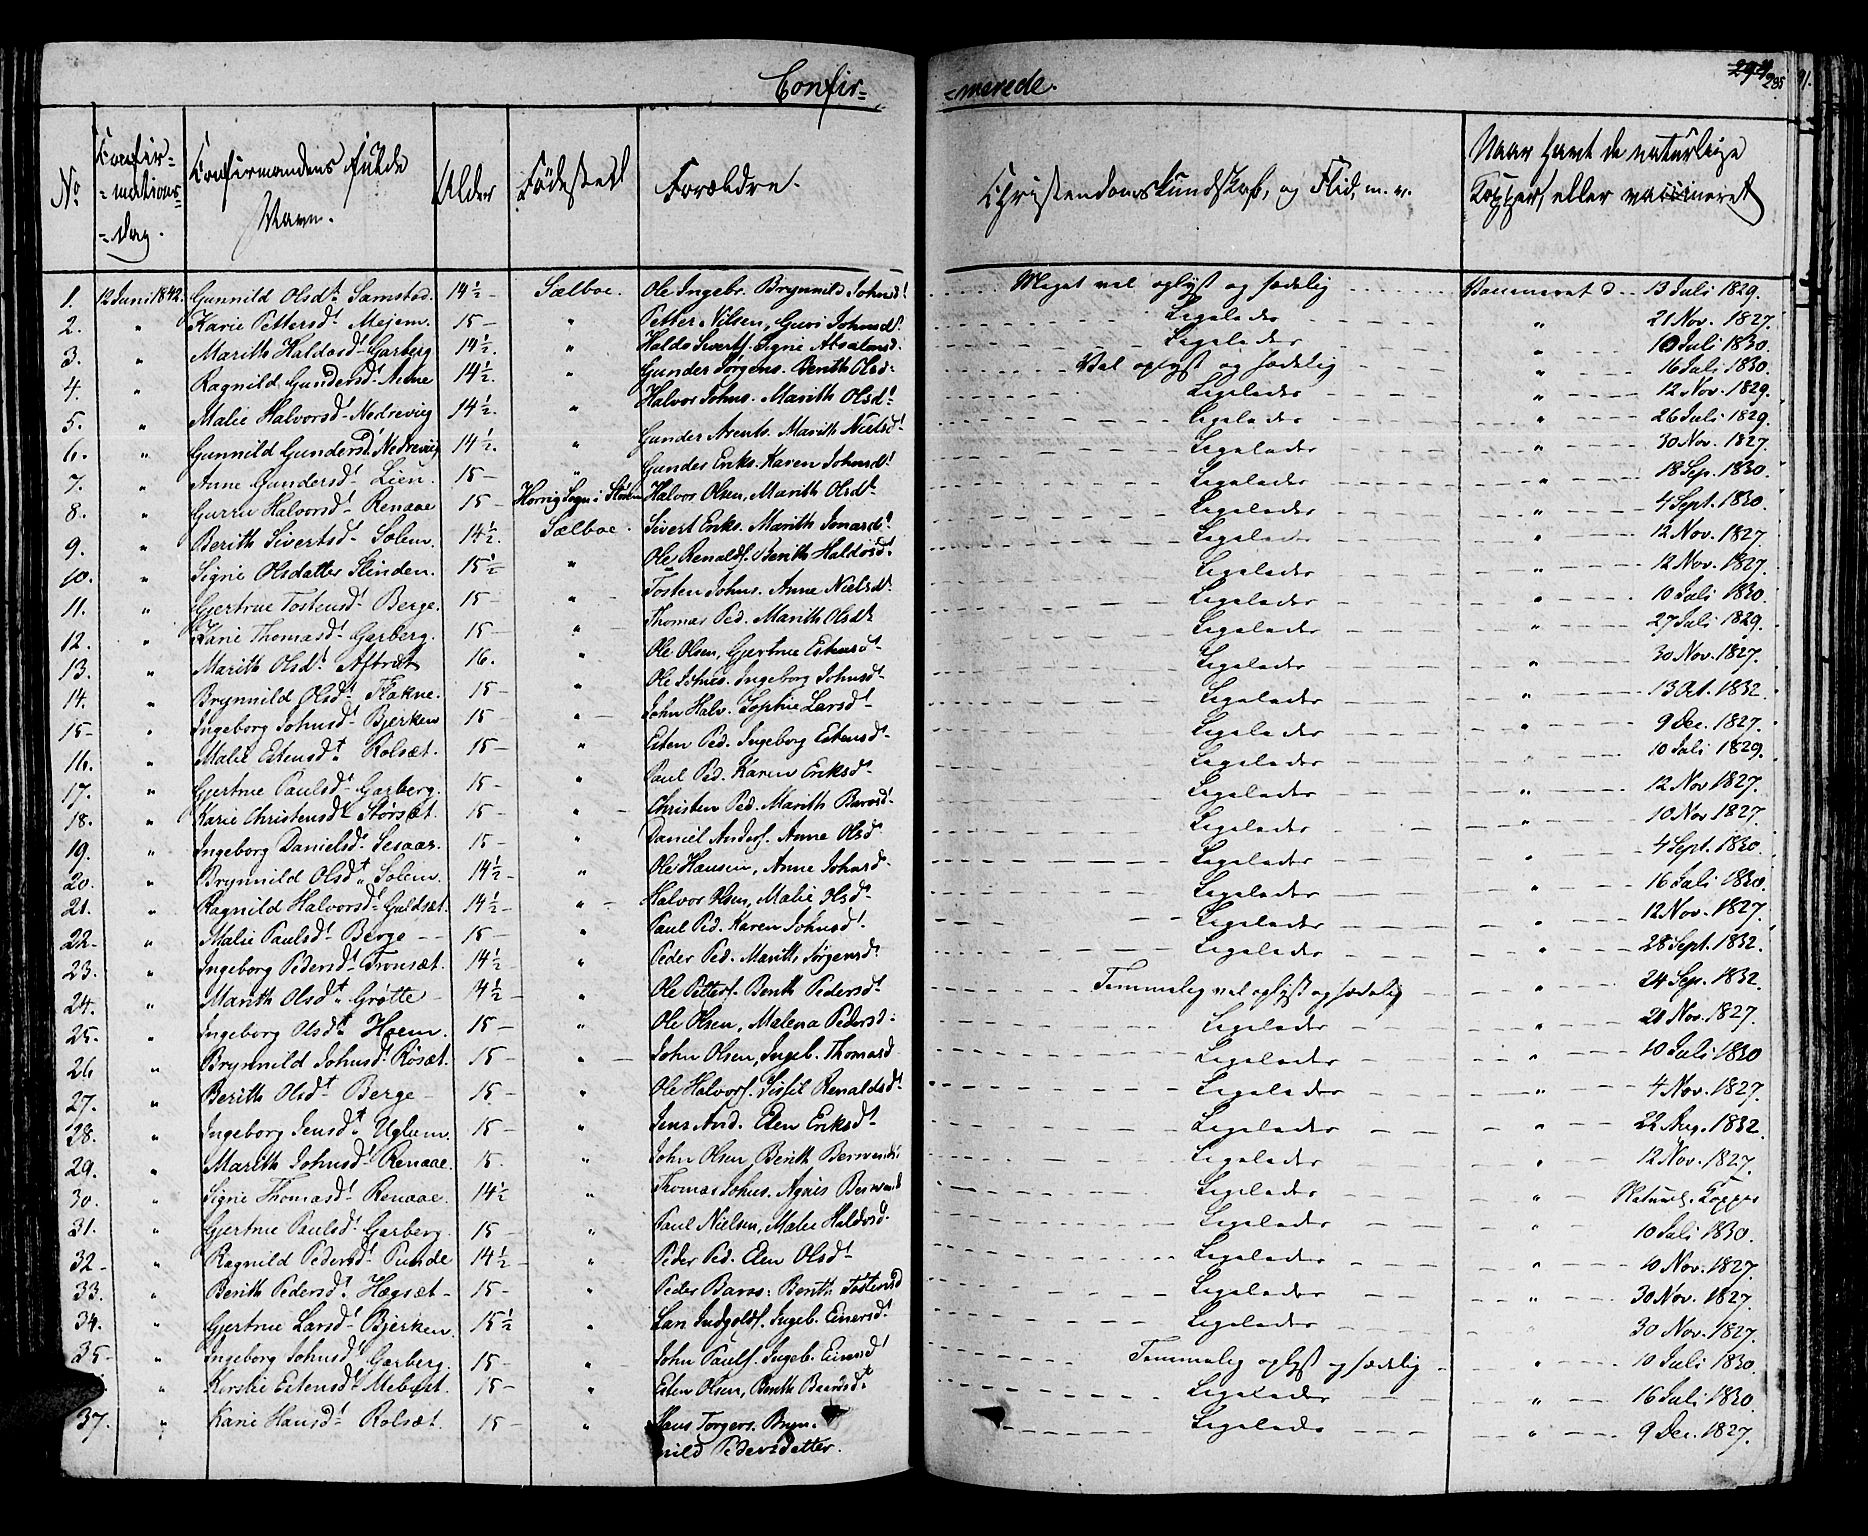 Confir=
=merede.
294 295
91.
No
Confir=
=mations=
=dag.
Confirmandens fulde
Navn.
Alder
Fødested
Forældre.
Christendomskundskab, og Flid, m. v.
Naar havt de naturlige
Kopper, eller vaccineret
1. 12 Juni 1842. Gunnild Olsdt Samstad. 14 1/2 - Sælboe. Ole Ingebr. Brynnild Johnsdt Meget vel oplyst og sædelig Vaccineret d. 13 Juli 1829.
2. " Karie Pettersdt Mejem. 15 - " Petter Nilsen, Guri Johnsdt. Ligeledes " 21 Nov. 1827.
3. " Marith Haldosdt Garberg 14 1/2. " Haldo Siverts. Signe Absalonsd. Ligeledes " 10 Juli 1830.
4. " Ragnild Gundersdt Aune 14 1/2. " Gunder Jørgens. Berith Olsd. Vel oplyst og sædelig " 16 Juli 1830.
5. " Malie Halvorsdt Nedrevig 14 1/2. " Halvor Johns. Marith Olsdt Ligeledes " 12 Nov. 1829.
6. " Gunnild Gundersdt Nedrevig 14 1/2. " Gunder Arents. Marith Nielsdt Ligeledes " 26 Juli 1829.
7. " Anne Gundersdt Lien. 15 - " Gunder Eriks. Karen Johnsdt Ligeledes " 30 Nov. 1827.
8. " Gurru Halvorsdt Renaae 15 - Horrig Sogn i Støren Halvor Olsen, Marith Olsdt Ligeledes " 18 Sep. 1830.
9. " Berith Sivertsdt Solem. 14 1/2. Sælboe. Sivert Eriks. Marith Ionasdt Ligeledes " 4 Sept. 1830.
10. " Signe Olsdatter Slinden. 15 1/2 " Ole Renalds. Berith Haldosdt Ligeledes " 12 Nov. 1827.
11. " Gjertrue Tostensdt Berge. 15 - " Tosten Johns. Anne Nielsdt Ligeledes " 12 Nov. 1827.
12. " Karie Thomasdt Garberg. 15 - " Thomas Ped. Marith Olsdt Ligeledes " 10 Juli 1830.
13. " Marith Olsdt Aftret 16. " Ole Olsen, Gjertrue Estensdt Ligeledes " 27 Juli 1829.
14. " Brynnild Olsdt Flakne. 15 - " Ole Johns. Ingeborg Johnsdt Ligeledes " 30 Nov. 1827.
15 - " Ingeborg Johnsdt Bjerken 15 - " John Halv. Sophie Larsdt Ligeledes " 13 Oct. 1832
16. " Malie Estensdt Rolsæt. 15 - " Esten Ped. Ingeborg Estensdt Ligeledes " 9 Dec. 1827.
17. " Gjertrue Paulsdt Garberg. 15 - " Paul Ped. Karen Eriksdt Ligeledes " 10 Juli 1829.
18. " Karie Christensdt Storsæt. 15 - " Christen Ped. Marith Barosdt Ligeledes " 12 Nov 1827.
19. " Ingeborg Danielsdt Lesaas. 15 - " Daniel Anders. Anne Olsdt Ligeledes " 10 Nov 1827.
20. " Brynnild Olsdt Solem. 14 1/2 - " Ole Hansen, Anne Johnsd. Ligeledes " 4 Sept. 1830.
21. " Ragnild Halvorsdt Guldsæt. 14 1/2 - " Halvor Olsen, Malie Olsdt Ligeledes " 16 Juli 1830.
22 - " Malie Paulsdt Berge - - 15 - " Paul Ped. Karen Johnsdt Ligeledes " 12 Nov. 1827.
23. " Ingeborg Pedersdt Tronsæt. 14 1/2 " Peder Ped. Marith Jørgensdt Ligeledes " 28 Sept. 1832.
24. " Marith Olsdt Grøtte - 14 1/2 - " Ole Petters. Berith Pedersdt Temmelig vel oplyst og sædelig " 24 Sep. 1832.
25. " Ingeborg Olsdt Hoem. 15 - " Ole Olsen, Malena Pedersd. Ligeledes " 21 Nov. 1827.
26 " Brynnild Johnsdt Røsæt. 15 - " John Olsen, Ingeb. Thomasd Ligeledes " 10 Juli 1830
27. " Berith Olsdt Berge - 15 - " Ole Halvors. Sissil Renaldsdt Ligeledes " 4 Nov. 1827.
28. " Ingeborg Jensdt Uglem. 15 - " Jens And. Elen Eriksdt Ligeledes " 22 Aug. 1832.
29. " Marith Johnsdt Renaae. 15. " John Olsen Berith Ligeledes " 12 Nov. 1827.
30. " Signe Thomasdt Renaae. 14 1/2 " Thomas Johns. Agnis Ligeledes " Naturl. Kopper
31. " Gjertrue Paulsdt Garberg. 15 - " Paul Nielsen, Malie Haldosd. Ligeledes " 10 Juli 1830.
32 - " Ragnild Pedersdt Punde 14 1/2 - " Peder Ped. Elen Olsdt Ligeledes " 10 Nov. 1827.
33. " Berith Pedersdt Hægsæt - 15 - " Peder Baros. Berith Tostensd Ligeledes " 30 Nov. 1827.
34. " Gjertrue Larsdt Bjerken. 15 1/2 " Lars Ingolds. Ingeb. Einersdt Ligeledes " 30 Nov. 1827.
35 - " Ingeborg Johnsdt Garberg. 15 - " John Pauls. Ingeb. Einersdt Temmelig oplyst og sædelig " 10 Juli 1830.
" Kirstie Estensdt Mebust. 15 - " Esten Olsen, Berith Baardsdt Ligeledes " 16 Juli 1830.
37. " Karie Hansdt Rolsæt. 15 - " Hans Torgers. Bryn- Ligeledes " 9 Dec. 1827.
nild Pedersdatter.